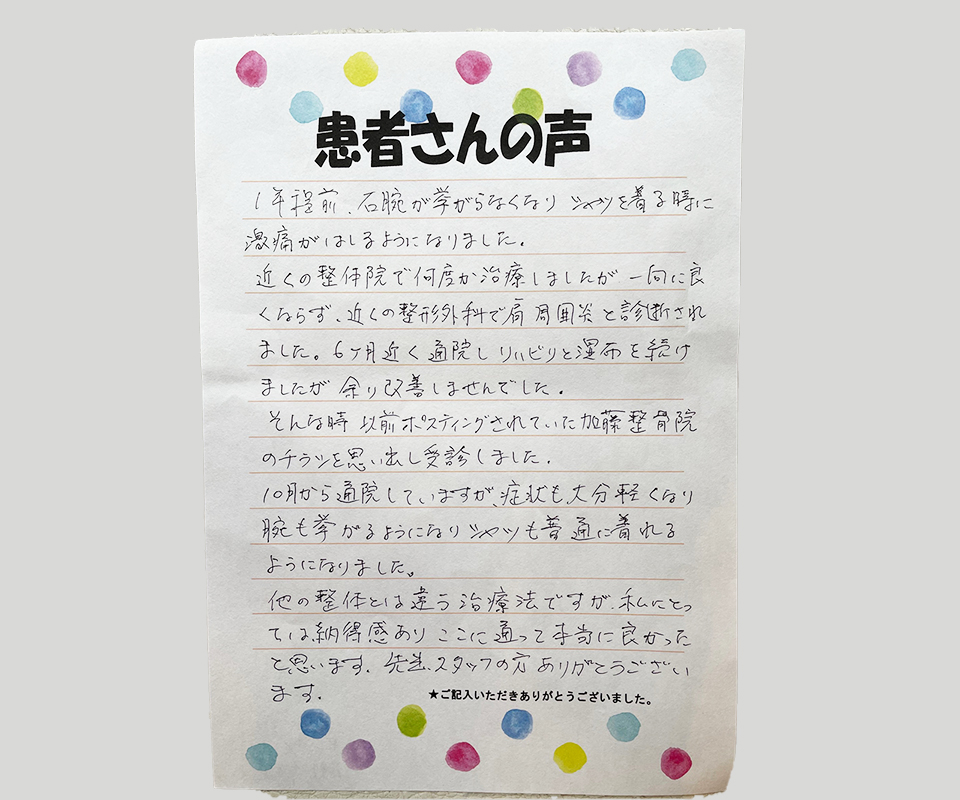 患者さんの声
1年程前、右腕が挙がらなくなり シャツを着る時に
激痛がはしるようになりました。
近くの整体院で何度か治療しましたが 一向に良
くならず、近くの整形外科で肩周囲炎と診断され
ました。6ヶ月近く通院し リハビリと湿布を続け
ましたが 余り改善しませんでした。
そんな時 以前ポスティングされていた加藤整骨院
のチラシを思い出し受診しました。
10月から通院していますが、症状も大分軽くなり
腕も挙がるようになり シャツも普通に着れる
ようになりました。
他の整体とは違う治療法ですが、私にとっ
ては納得感あり ここに通って本当に良かった
と思います。先生、スタッフの方 ありがとうござい
ます。
★ご記入いただきありがとうございました。